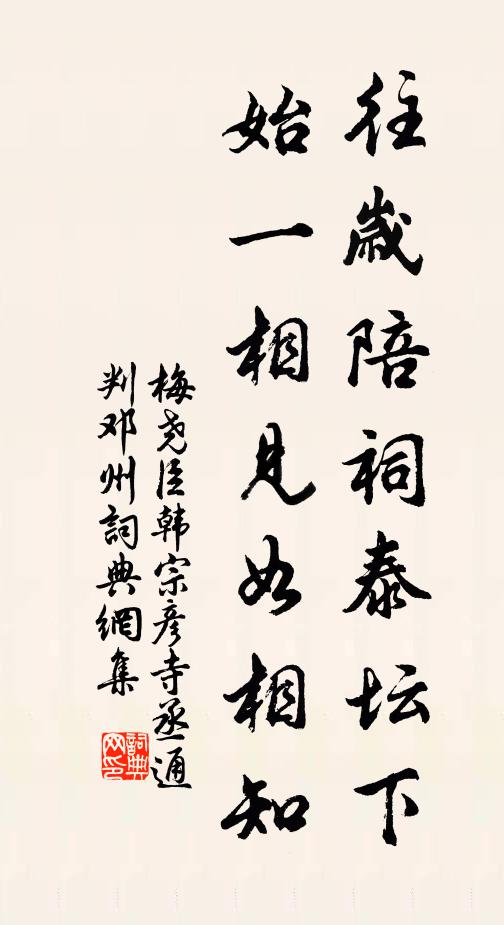 往岁陪祠泰坛下
始一相见如相知
梅尧臣韩宗彦寺丞通
判邓州詞典網集
詞典
网印